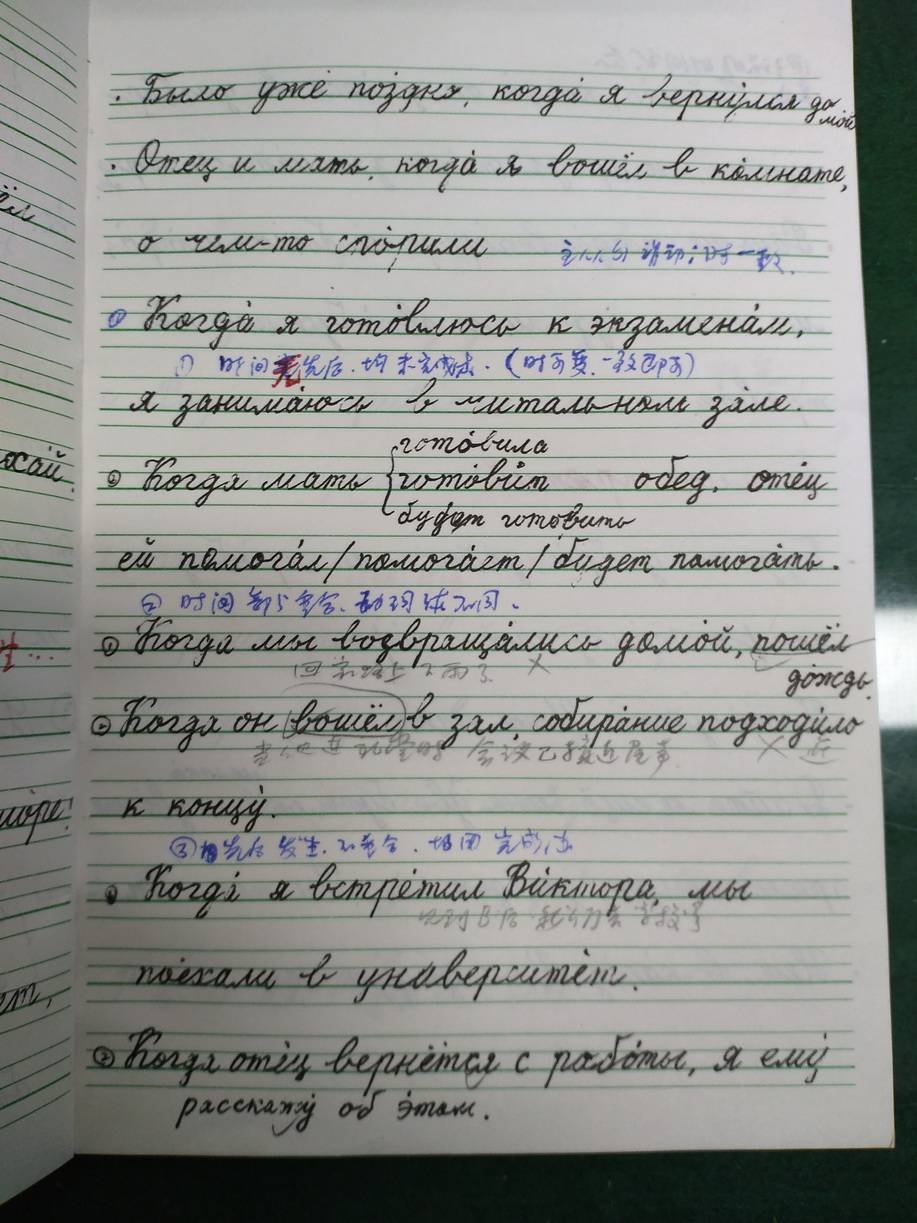 . Было уже́ по́здно, когда́ я верну́лся домой
. Отец и мать, когда́ я вошёл в ко́мнате,
о чём-то спо́рили
① Когда́ я гото́влюсь к экзамена́м,
① 时间 先后. 均未完成体. (时可异. 一致即可)
я занима́юсь в читальном за́ле.
гото́вила
② Когда мать гото́вит обед, оте́ц
будет гото́вить
ей помога́л/помога́ет/будет помога́ть.
② 时间部分重合. 动词体不同.
① Когда мы возвраща́лись домо́й, пошёл
дождь.
回家路上下雨了 ×
② Когда он вошёл в зал, собира́ние подходи́ло
会议已接近尾声. × 近
к концу́.
③ 先后发生. 不重合. 均用完成体
① Когда́ я встре́тил Ви́ктора, мы
пое́хали в университе́т.
② Когда оте́ц вернётся с рабо́ты, я ему́
расскажу́ об э́том.
осой.
море!
ет,